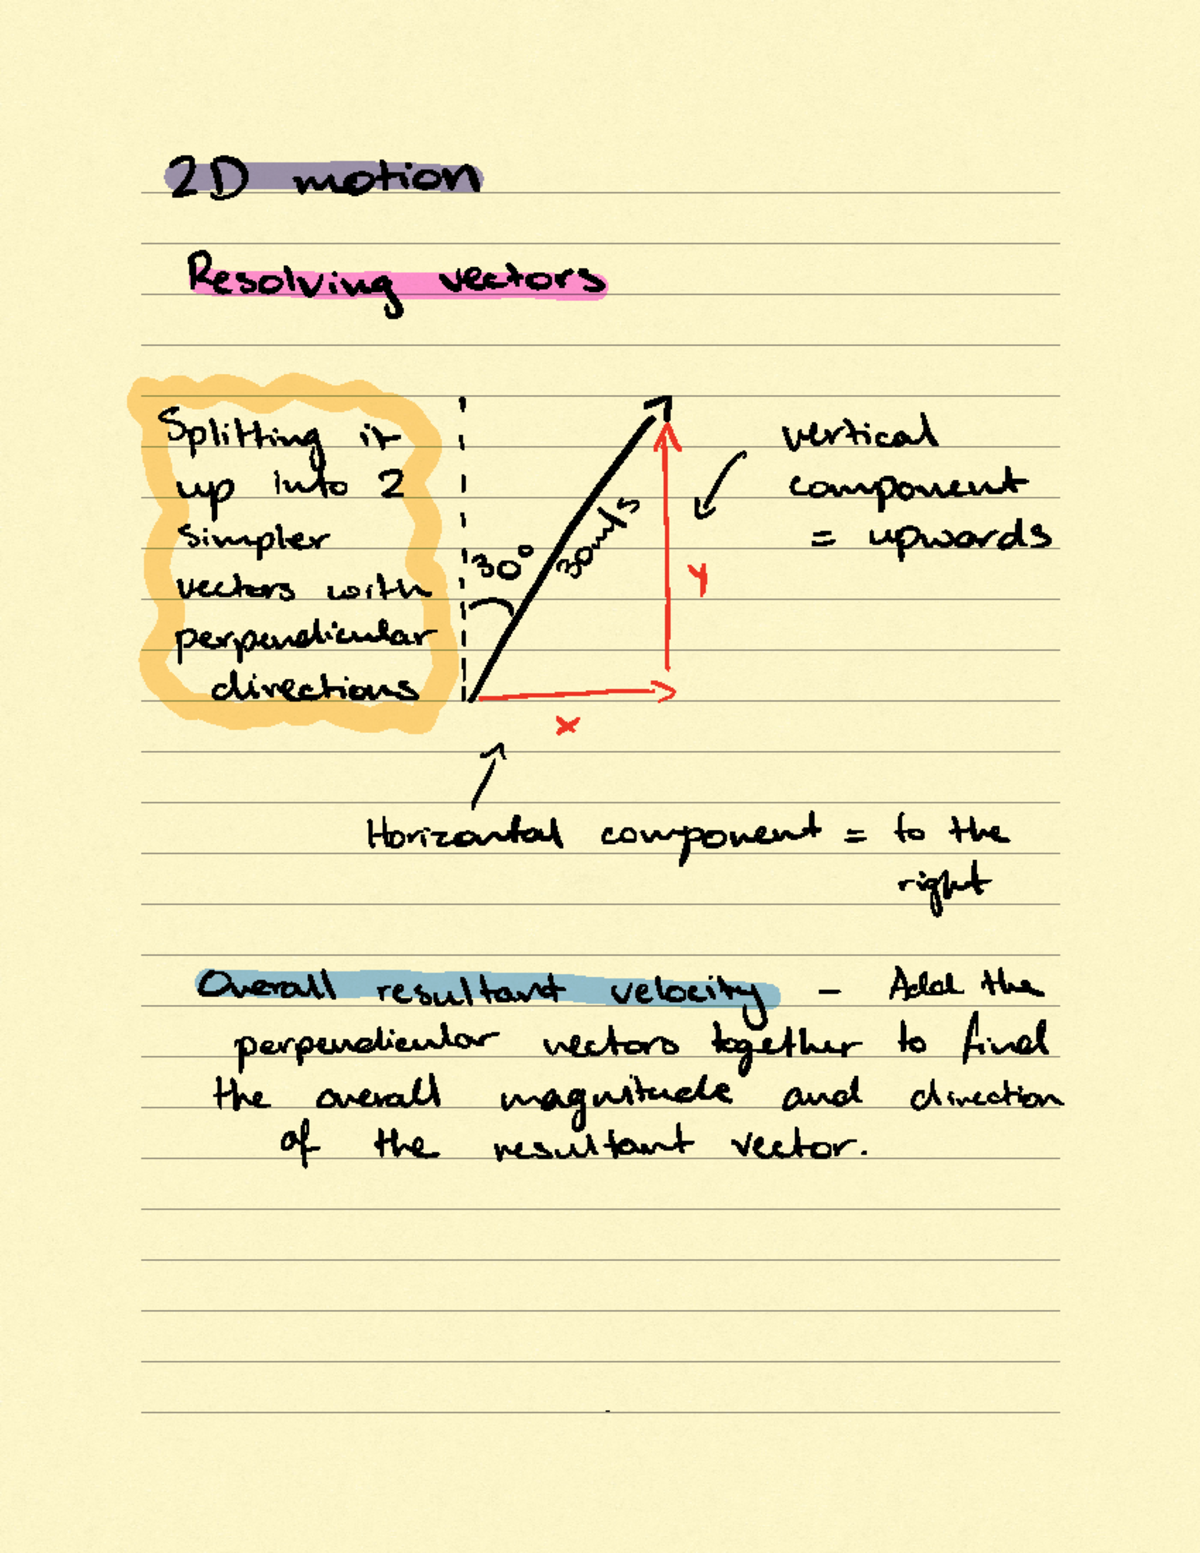 2D motion
Resolving vectors
Splitting it
up into 2
simpler
vectors with
perpendicular
directions
30°
30m/s
vertical
component
= upwards
y
x
Horizontal component = to the
right
Overall resultant velocity - Add the
perpendicular vectors together to find
the overall magnitude and direction
of the resultant vector.